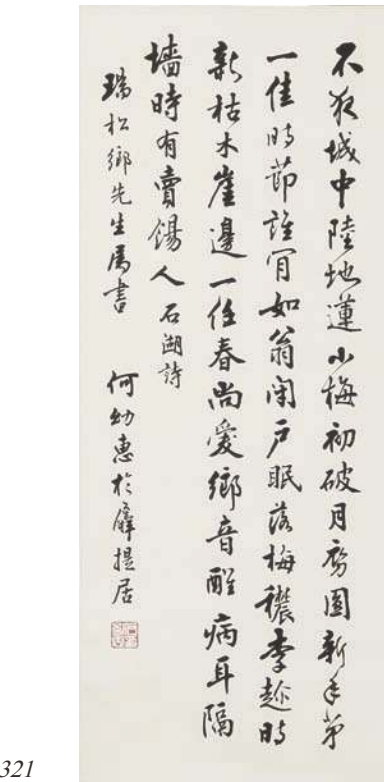 不夜城中陸地蓮小梅初破月圓新年第
一佳時節誰肎如翁閉戶眠落梅穠李趁時
新枯木崖邊一任春尚愛鄉音醒病耳隔
墻時有賣餳人 石湖詩
瑞松鄉先生屬書 何幼惠於羼提居
321